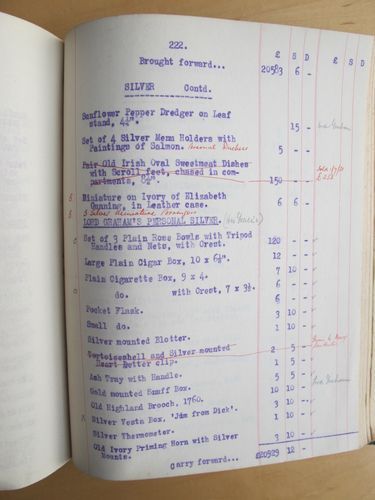 222.
£ S D £ S D
Brought forward... 20583 6 -
SILVER Contd.
Sunflower Pepper Dredger on Leaf
stand, 4½". 15 -
Set of 4 Silver Menu Holders with
Paintings of Salmon. Personal Duchess 5 - -
Pair Old Irish Oval Sweetmeat Dishes
with Scroll feet, chased in com-
partments, 6½". 150 - -
Miniature on Ivory of Elizabeth
Gunning, in Leather case. 6 6 -
3 Silver Miniature
LORD GRAHAM'S PERSONAL SILVER.
Set of 3 Plain Rose Bowls with Tripod
Handles and Nets, with Crest. 120 - -
Large Plain Cigar Box, 10 x 6½". 12 - -
Plain Cigarette Box, 9 x 4. 7 10 -
do. with Crest, 7 x 3½. 6 - -
Pocket Flask. 3 10 -
Small do. 1 10 -
Silver mounted Blotter. 5 - -
Tortoiseshell and Silver mounted
Heart Letter clip. 2 5 -
Ash Tray with Handle. 1 5 -
Gold mounted Snuff Box. 5 - -
Old Highland Brooch, 1760. 10 10 -
Silver Vesta Box, 'Jdm from Dick'. 1 10 -
Silver Thermometer. 1 10 -
Old Ivory Priming Horn with Silver
Mounts. 3 10 -
Carry forward... £20929 12 -